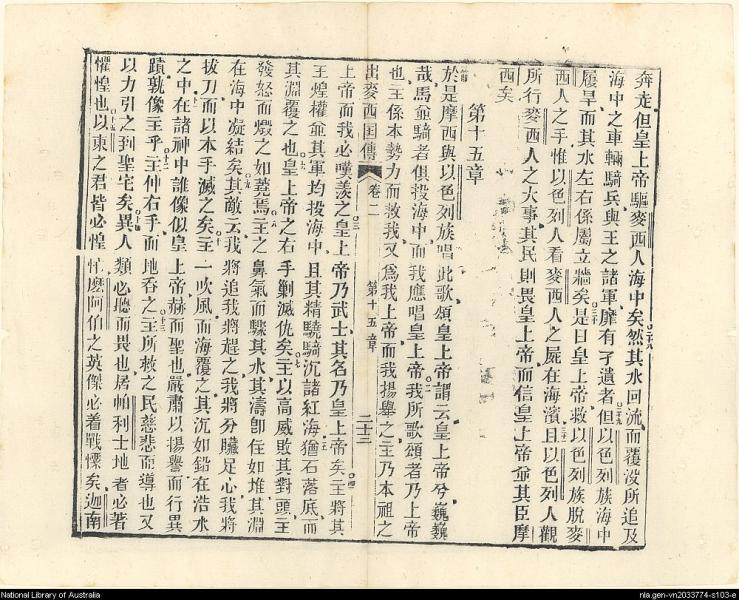 奔走但皇上帝驅麥西人海中矣然其水回流而覆沒所追及
海中之車輛騎兵與王之諸軍靡有孑遺者但以色列族海中
履旱而其水左右係屬立牆矣是日皇上帝救以色列族脫麥
西人之手惟以色列人看麥西人之屍在海濱且以色列人觀
所行麥西人之大事其民則畏皇上帝而信皇上帝並其臣摩
西矣
第十五章
於是摩西與以色列族唱此歌頌皇上帝謂云皇上帝兮巍巍
哉馬並騎者俱投海中而我應唱皇上帝我所歌頌者乃上帝
也主係本勢力而救我又為我上帝而我揚舉之主乃本祖之
出麥西國傳 卷二 第十五章 二十三
上帝而我必嘆羨之皇上帝乃武士其名乃皇上帝矣主將其
王煌權並其軍均投海中且其精驍騎沉諸紅海猶石落底而
其淵覆之也皇上帝之右手剿滅仇矣主以高威敗其對頭主
發怒而燬之如蕘焉主之鼻氣而驟其水其濤卽住如堆其淵
在海中凝結矣其敵云我將追我將趕之我將分贓足心我將
拔刀而以本手滅之矣主一吹風而海覆之其沉如鉛在浩水
之中在諸神中誰像似皇上帝赫而聖也嚴肅以揚譽而行異
蹟孰像主乎主伸右手而地吞之主所救之民慈悲而導也又
以力引之到聖宅矣異人類必聽而畏也居帕利士地者必著
懼惶也以東之君皆必惶忙摩阿伯之英傑必着戰慄矣迦南
National Library of Australia
nla.gen-vn2033774-s103-e